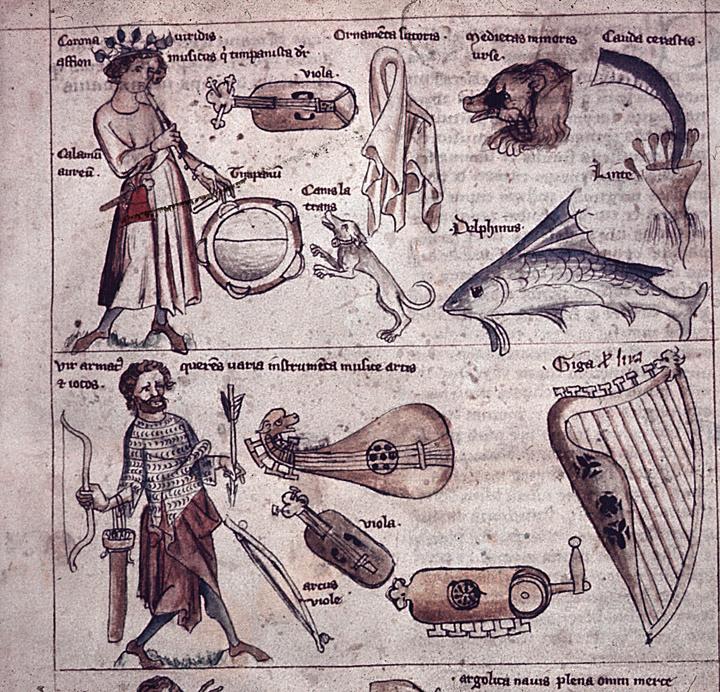 Corona viridis
affion musicus q timpanista dr
viola
Ornamēta sutoris
medietas minoris
urse
Cauda cerastis
Calamū
aureū
Timpanū
Canis la
trans
Linte
Delphinus
vir armat queres uaria instrumēta musice artis
& iocos
Giga lira
viola
arcus
viole
argolica nauis plena omni merce